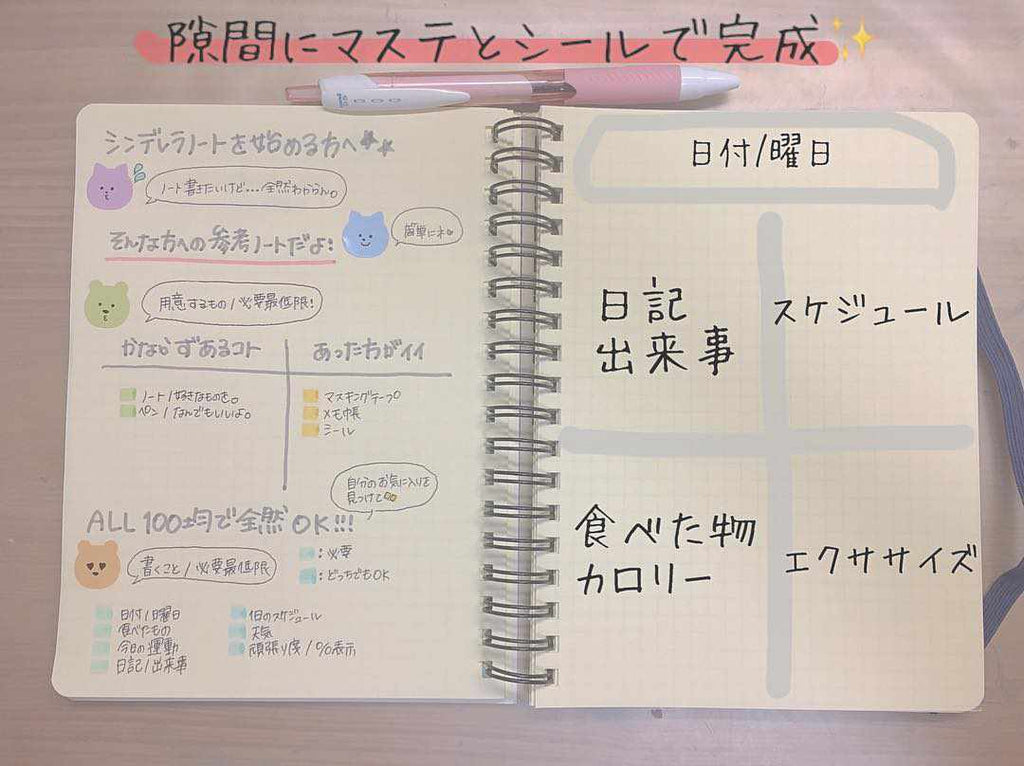 隙間にマステとシールで完成✨
シンデレラノートを始める方へ★★
ノート書きたいけど...全然わからん。
そんな方への参考ノートだよ!
簡単にネ
用意するもの/必要最低限!
かならずあるコト
あった方がイイ
ノート/好きなものを。
ペン/なんでもいいよ。
マスキングテープ
メモ帳
シール
自分のお気に入りを
見つけて
ALL 100均で全然OK!!!
書くこと/必要最低限
:必要
:どっちでもOK
日付/日曜日
食べたもの
今日の運動
日記/出来事
1日のスケジュール
天気
頑張り度/%表示
日付/曜日
日記
出来事
スケジュール
食べた物
カロリー
エクササイズ